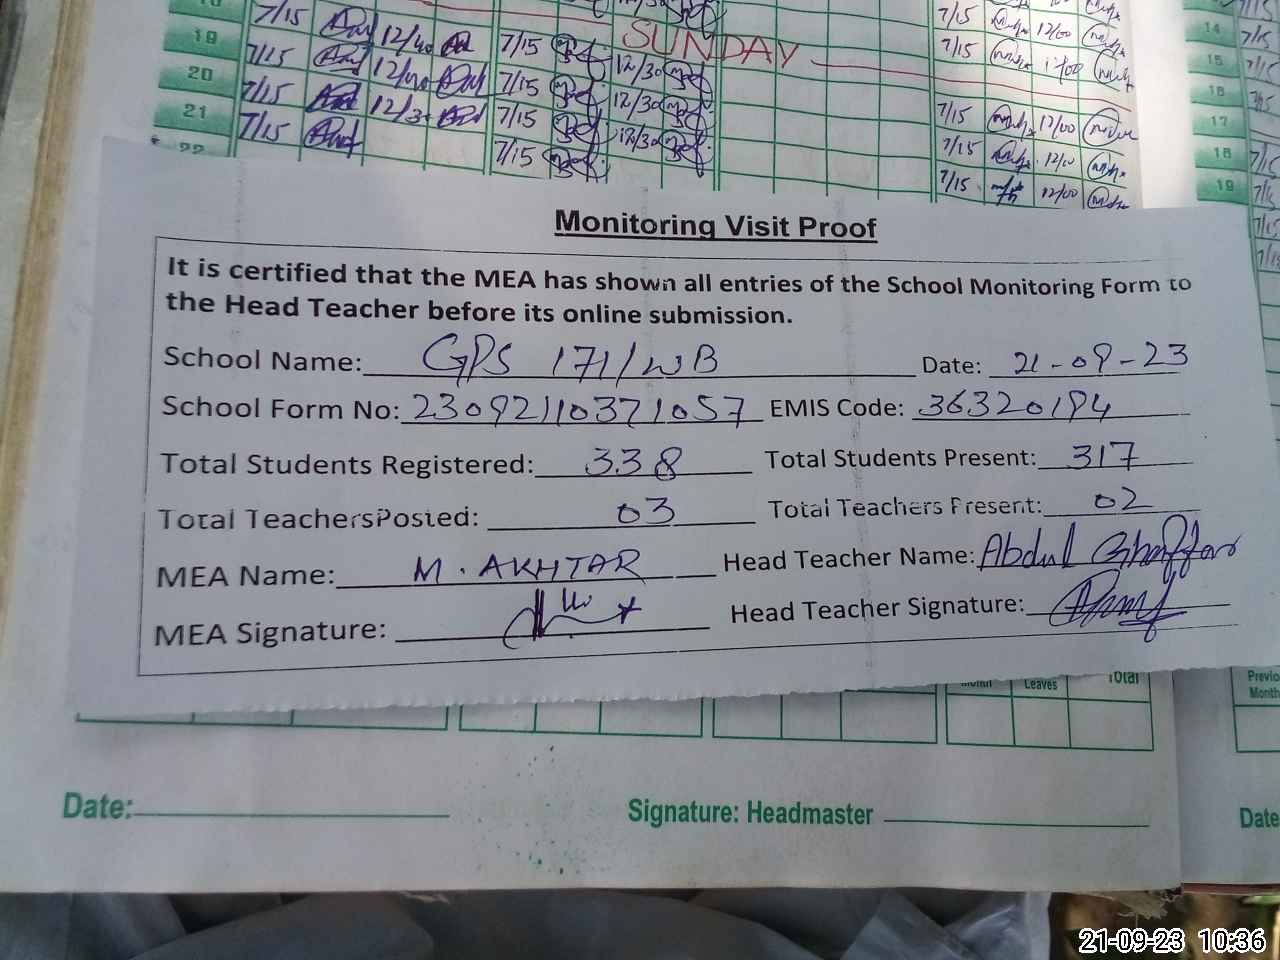 19 7/15 12/40 7/15 SUNDAY 7/15 12/00
20 7/15 12/40 7/15 12/30 7/15
21 7/15 12/30 7/15 12/30 7/15 12/00
22 7/15 7/15 12/30 7/15
7/15 7/15 12/00
14
15
16
17
18
19
Monitoring Visit Proof
It is certified that the MEA has shown all entries of the School Monitoring Form to
the Head Teacher before its online submission.
School Name: GPS 171/WB Date: 21-09-23
School Form No: 23092110371057 EMIS Code: 36320194
Total Students Registered: 338 Total Students Present: 317
Total TeachersPosted: 03 Total Teachers Present: 02
MEA Name: M. AKHTAR Head Teacher Name: Abdul Ghaffar
MEA Signature: Head Teacher Signature:
Month Leaves Total Previo
Month
Date: Signature: Headmaster Date
21-09-23 10:36